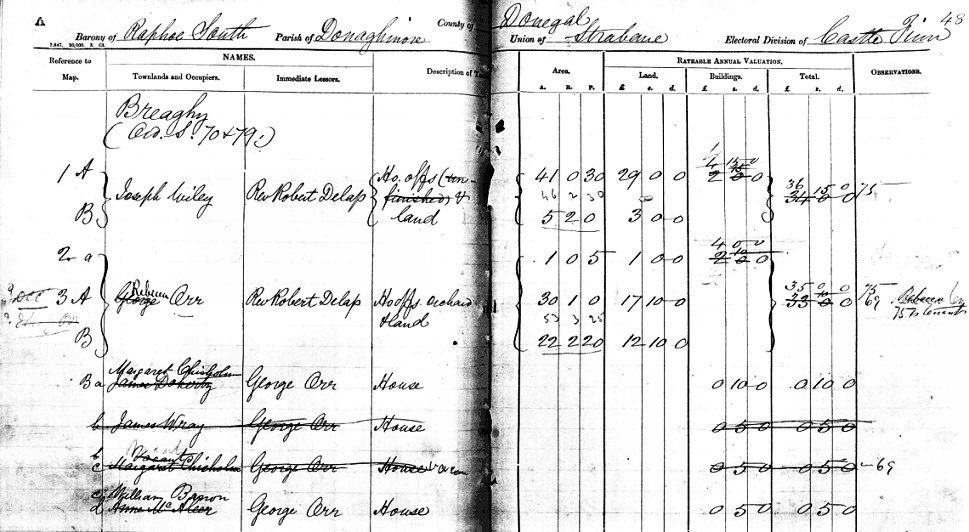 A
County of Donegal
48
Barony of Raphoe South Parish of Donaghmore Union of Strabane Electoral Division of Castle Finn
Reference to Map.
NAMES.
Townlands and Occupiers.
Immediate Lessors.
Description of
Area.
A. R. P.
RATEABLE ANNUAL VALUATION.
Land.
£ s. d.
Buildings.
£ s. d.
Total.
£ s. d.
OBSERVATIONS.
Breaghy
(Ord. S. 70 & 79.)
1 A Ho. offs (un- 41 0 30 29 0 0 2 0 0
Joseph Wiley Rev Robert Delap finished) & 46 2 30 36 15 0 75
34 0 0
B land 5 2 0 3 0 0
4 0 0
2 a 1 0 5 1 0 0 2 10 0
Rebecca 35 0 0 75
3 A George Orr Rev Robert Delap Ho offs orchard 30 1 0 17 10 0 33 0 0 69 Rebecca
& land 53 3 25 75
B 22 2 20 12 10 0
Margaret Chisholm
B a James Doherty George Orr House 0 10 0 0 10 0
b James Wray George Orr House 0 5 0 0 5 0
b Vacant
c Margaret Chisholm George Orr House Vacan 0 5 0 0 5 0 69
c William Barron
d Anne McAleer George Orr House 0 5 0 0 5 0